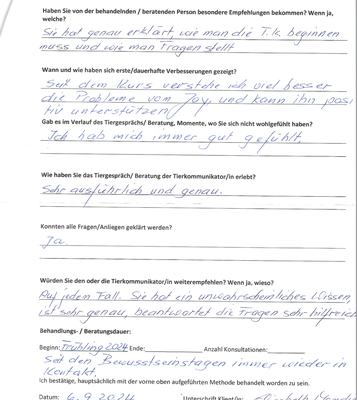 Haben Sie von der behandelnden / beratenden Person besondere Empfehlungen bekommen? Wenn ja,
welche?
Sie hat genau erklärt, wie man die T.k. beginnen
muss und wie man Fragen stellt
Wann und wie haben sich erste/dauerhafte Verbesserungen gezeigt?
Seit dem Kurs verstehe ich viel besser
die Probleme vom Jay, und kann ihn posi
tiv unterstützen
Gab es im Verlauf des Tiergesprächs/ Beratung, Momente, wo Sie sich nicht wohlgefühlt haben?
Ich hab mich immer gut gefühlt.
Wie haben Sie das Tiergespräch/ Beratung der Tierkommunikator/in erlebt?
Sehr ausführlich und genau.
Konnten alle Fragen/Anliegen geklärt werden?
Ja.
Würden Sie den oder die Tierkommunikator/in weiterempfehlen? Wenn ja, wieso?
Auf jeden Fall. Sie hat ein unwahrscheinliches Wissen,
ist sehr genau, beantwortet die Fragen sehr hilfreich
Behandlungs- / Beratungsdauer:
Beginn: Frühling 2024 Ende: Anzahl Konsultationen:
Seit den Bewusstseinstagen immer wieder in
Kontakt.
Ich bestätige, hauptsächlich mit der vorne oben aufgeführten Methode behandelt worden zu sein.
Datum: 6.9.2024 Unterschrift Klient/in: